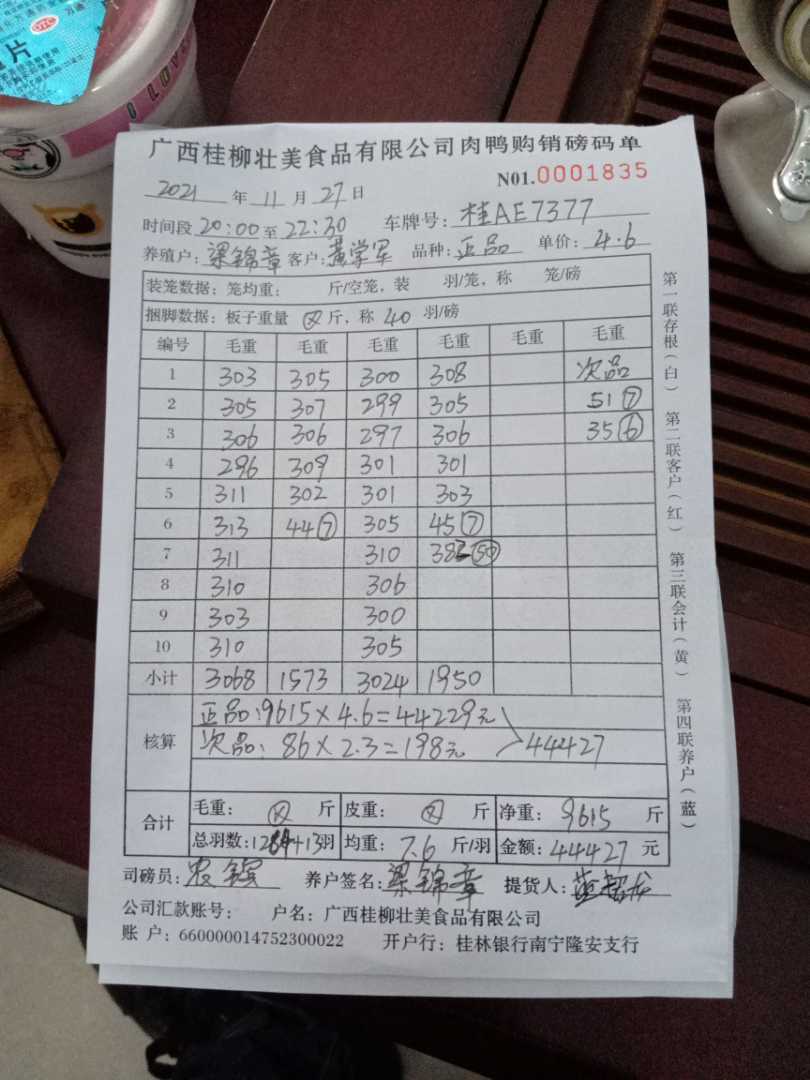 广西桂柳壮美食品有限公司肉鸭购销磅码单
N01.0001835
2021 年 11 月 27 日
时间段 20:00 至 22:30 车牌号: 桂AE7377
养殖户: 梁锦章 客户: 黄学军 品种: 正品 单价: 4.6
装笼数据: 笼均重: 斤/空笼, 装 羽/笼, 称 笼/磅
捆脚数据: 板子重量 斤, 称 40 羽/磅
编号 毛重 毛重 毛重 毛重 毛重 毛重
1 303 305 300 308 次品
2 305 307 299 305 51⑦
3 306 306 297 306 35⑥
4 296 309 301 301
5 311 302 301 303
6 313 44⑦ 305 45⑦
7 311 310 382㊿
8 310 306
9 303 300
10 310 305
小计 3068 1573 3024 1950
核算 正品:9615×4.6=44229元
次品: 86×2.3=198元 44427
合计 毛重: 斤 皮重: 斤 净重: 9615 斤
总羽数: 羽 均重: 7.6 斤/羽 金额: 44427 元
司磅员: 养户签名: 梁锦章 提货人:
公司汇款账号: 户名: 广西桂柳壮美食品有限公司
账 户: 660000014752300022 开户行: 桂林银行南宁隆安支行
第一联存根(白) 第二联客户(红) 第三联会计(黄) 第四联养户(蓝)
OTC